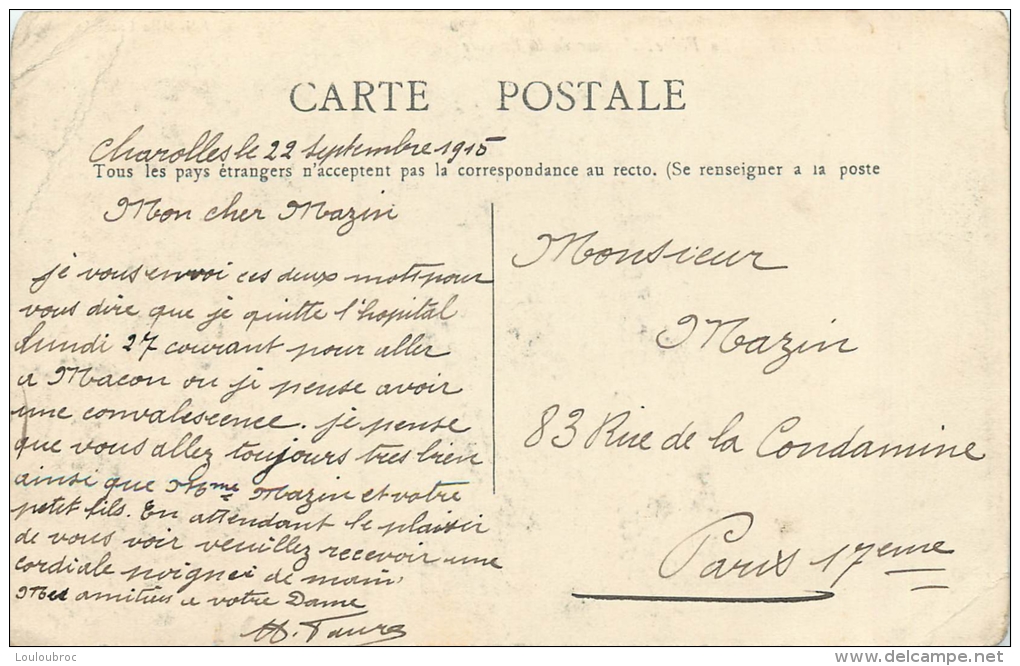 CARTE POSTALE
Charolles le 22 Septembre 1915
Tous les pays étrangers n'acceptent pas la correspondance au recto. (Se renseigner a la poste
Mon cher Mazin
je vous envoi ces deux mots pour
vous dire que je quitte l'hopital
Lundi 27 courant pour aller
a Macon ou je pense avoir
une convalescence. je pense
que vous allez toujours tres bien
ainsi que Mme Mazin et votre
petit fils. En attendant le plaisir
de vous voir veuillez recevoir une
cordiale poignei de main
Mes amitiés a votre Dame
H. Faure
Monsieur
Mazin
83 Rue de la Condamine
Paris 17eme
Louloubroc
www.delcampe.net